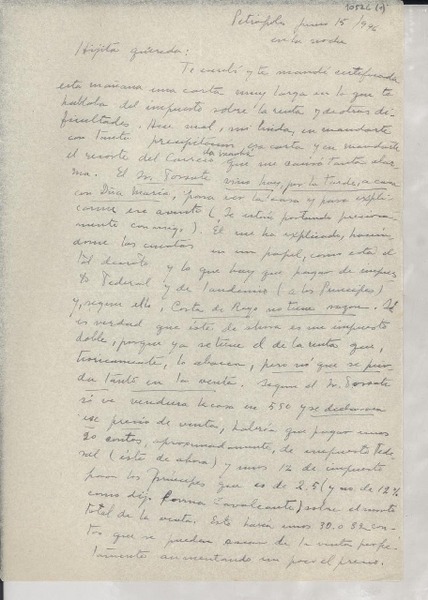 10526 (1)
Petrópolis junio 15/946
en la noche
Hijita querida:
Te escribí y te mandé certificada
esta mañana una carta muy larga en la que te
hablaba del impuesto sobre la renta y de otras di-
ficultades. Hice mal, mi linda, en mandarte
con tanta precipitación esa carta y en mandarte
el resorte del Correio da manhã que me causó tanta alar-
ma. El Sr. Fossati vino hoy, por la tarde, a casa
con Doña María, para ver la casa y para expli-
carme ese asunto (Se están portando preciosa-
mente conmigo). El me ha explicado, hacién-
dome las cuentas en un papel, como está el
el decreto y lo que hay que pagar de impues-
to Federal y de laudemio (a los Príncipes)
y, según ello, Costa de Rego no tiene razón. Sí
es verdad que este de ahora es un impuesto
doble, porque ya se tiene el de la renta que,
teóricamente, lo abarca, pero no que se pier-
da tanto en la venta. Según el Sr. Fossati
si se vendiera la casa en 550 y se declarara
ese precio de venta, habría que pagar unos
20 contos, aproximadamente, de impuesto Fede-
ral (este de ahora) y unos 12 de impuesto
para los Príncipes que es de 2.5 (y no de 12%
como dijo Cavalcante) sobre el monto
total de la venta. Esto haría unos 30 o 32 con-
tos que se pueden sacar de la venta perfec-
tamente aumentando un poco el precio.